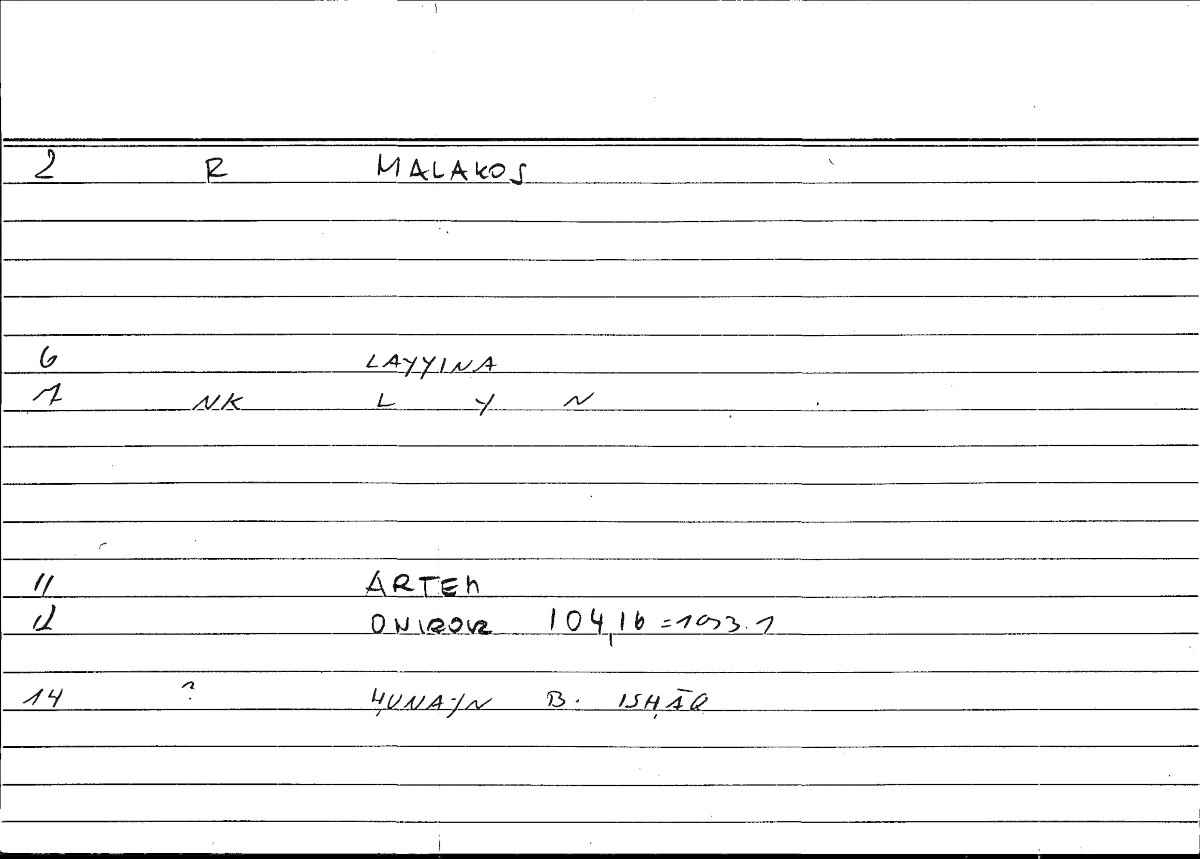 2 R MALAKOS
6 LAYYINA
7 NK L Y N
11 ARTEM
12 ONIROKR 104,16 =193.1
14 ? ḤUNAYN B. ISḤĀQ